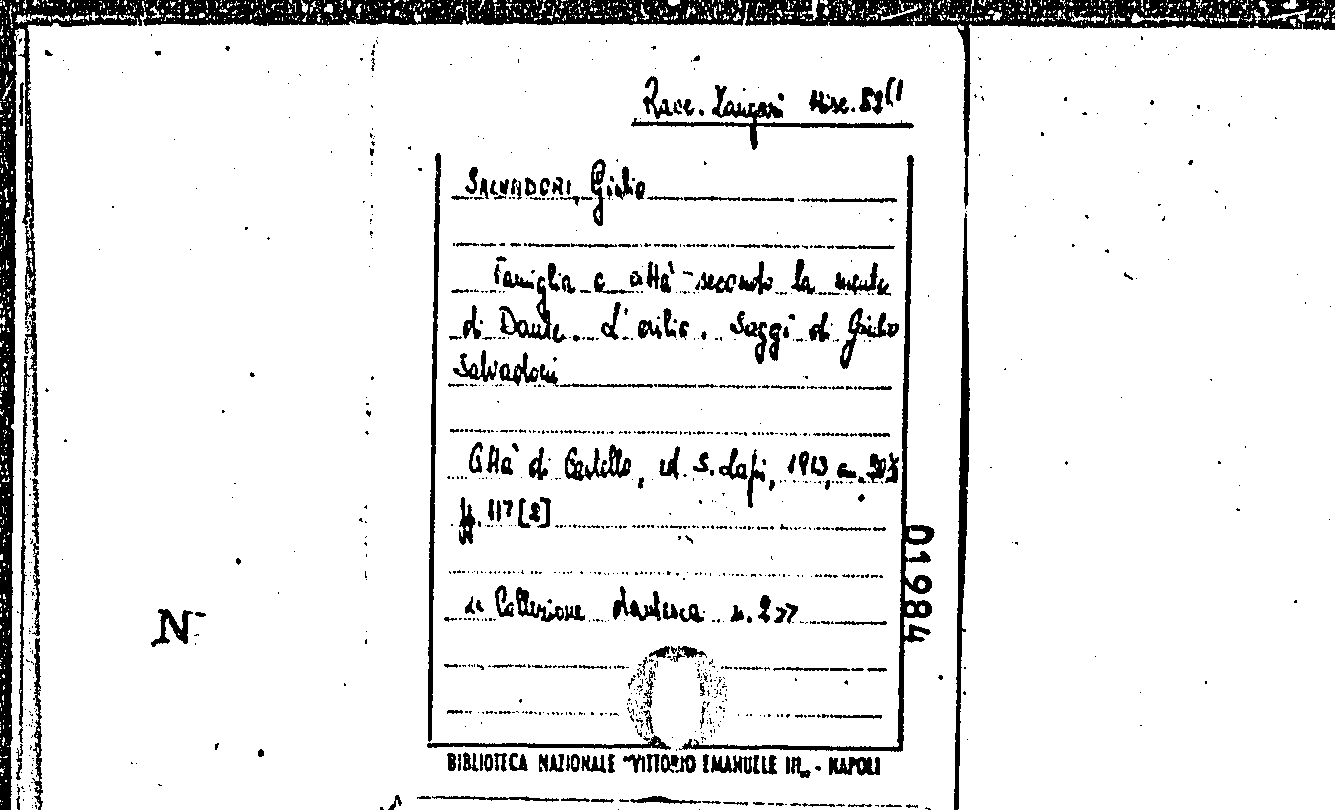 Racc. Zangari Misc. 52(1
SALVADORI, Giulio
Famiglia e città secondo la mente
di Dante. L'esilio. Saggi di Giulio
Salvadori
Città di Castello, ed. S. Lapi, 1913, cm.
pp. 117 [2]
Collezione dantesca n.
01984
N
BIBLIOTECA NAZIONALE "VITTORIO EMANUELE III" - NAPOLI